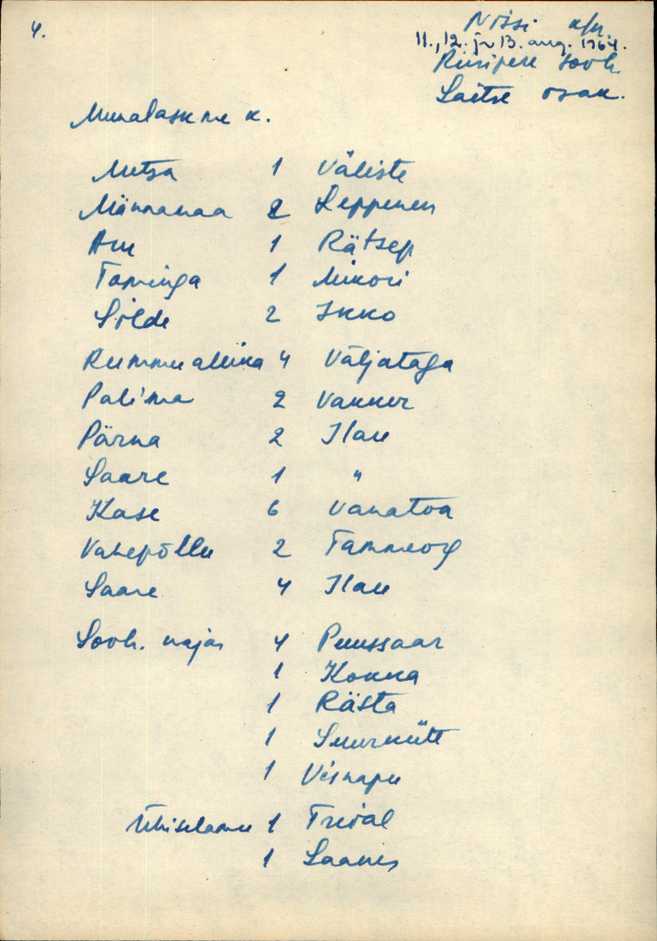 4.
Nissi k/n.
11., 12. ja 13. aug. 1964.
Riisipere sovh.
Laitse osak.
Munalaskme k.
Metsa 1 Väliste
Männamaa 2 Leppenen
Aru 1 Rätsep
Taminga 1 Mikori
Silde 2 Ikko
Rummu allika 4 Väljataga
Palima 2 Vakker
Pärna 2 Ilau
Saare 1 "
Kase 6 Vanatoa
Vahepõllu 2 Tammeorg
Saare 4 Ilau
Sovh. majas 4 Puussaar
1 Konna
1 Rästa
1 Suurkütt
1 Visnapu
Ühiselamu 1 Treial
1